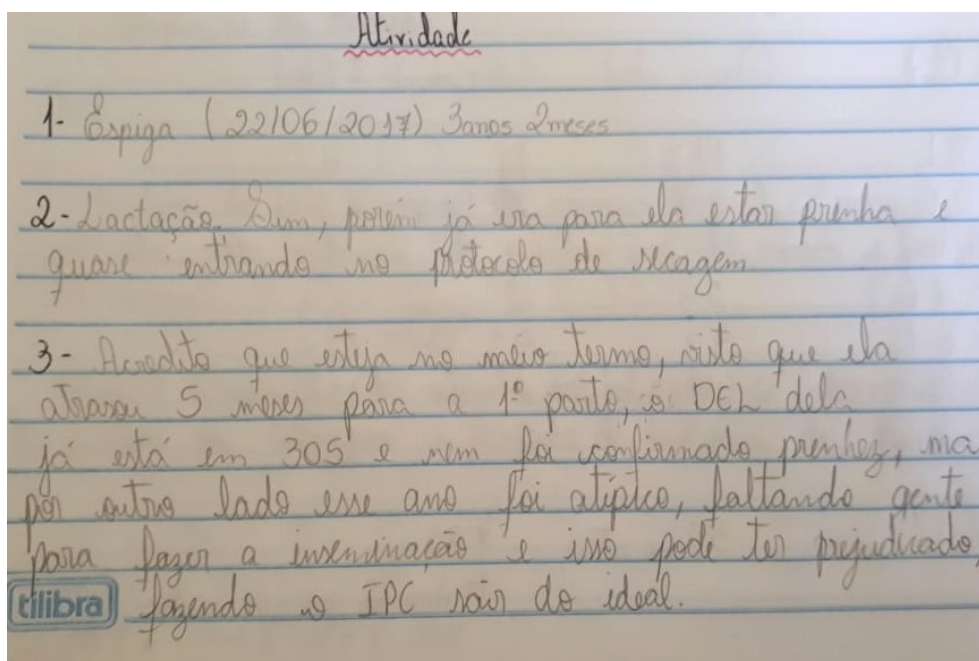 Atividade
1- Espiga (22/06/2017) 3anos 2meses
2- Lactação. Sim, porém já era para ela estar prenha e
quase entrando no protocolo de secagem
3- Acredito que esteja no meio termo, visto que ela
atrasou 5 meses para a 1º parto, o DEL dela
já está em 305 e nem foi confirmado prenhez, ma
por outro lado esse ano foi atípico, faltando gente
para fazer a inseminação e isso pode ter prejudicado,
tilibra fazendo o IPC sair do ideal.